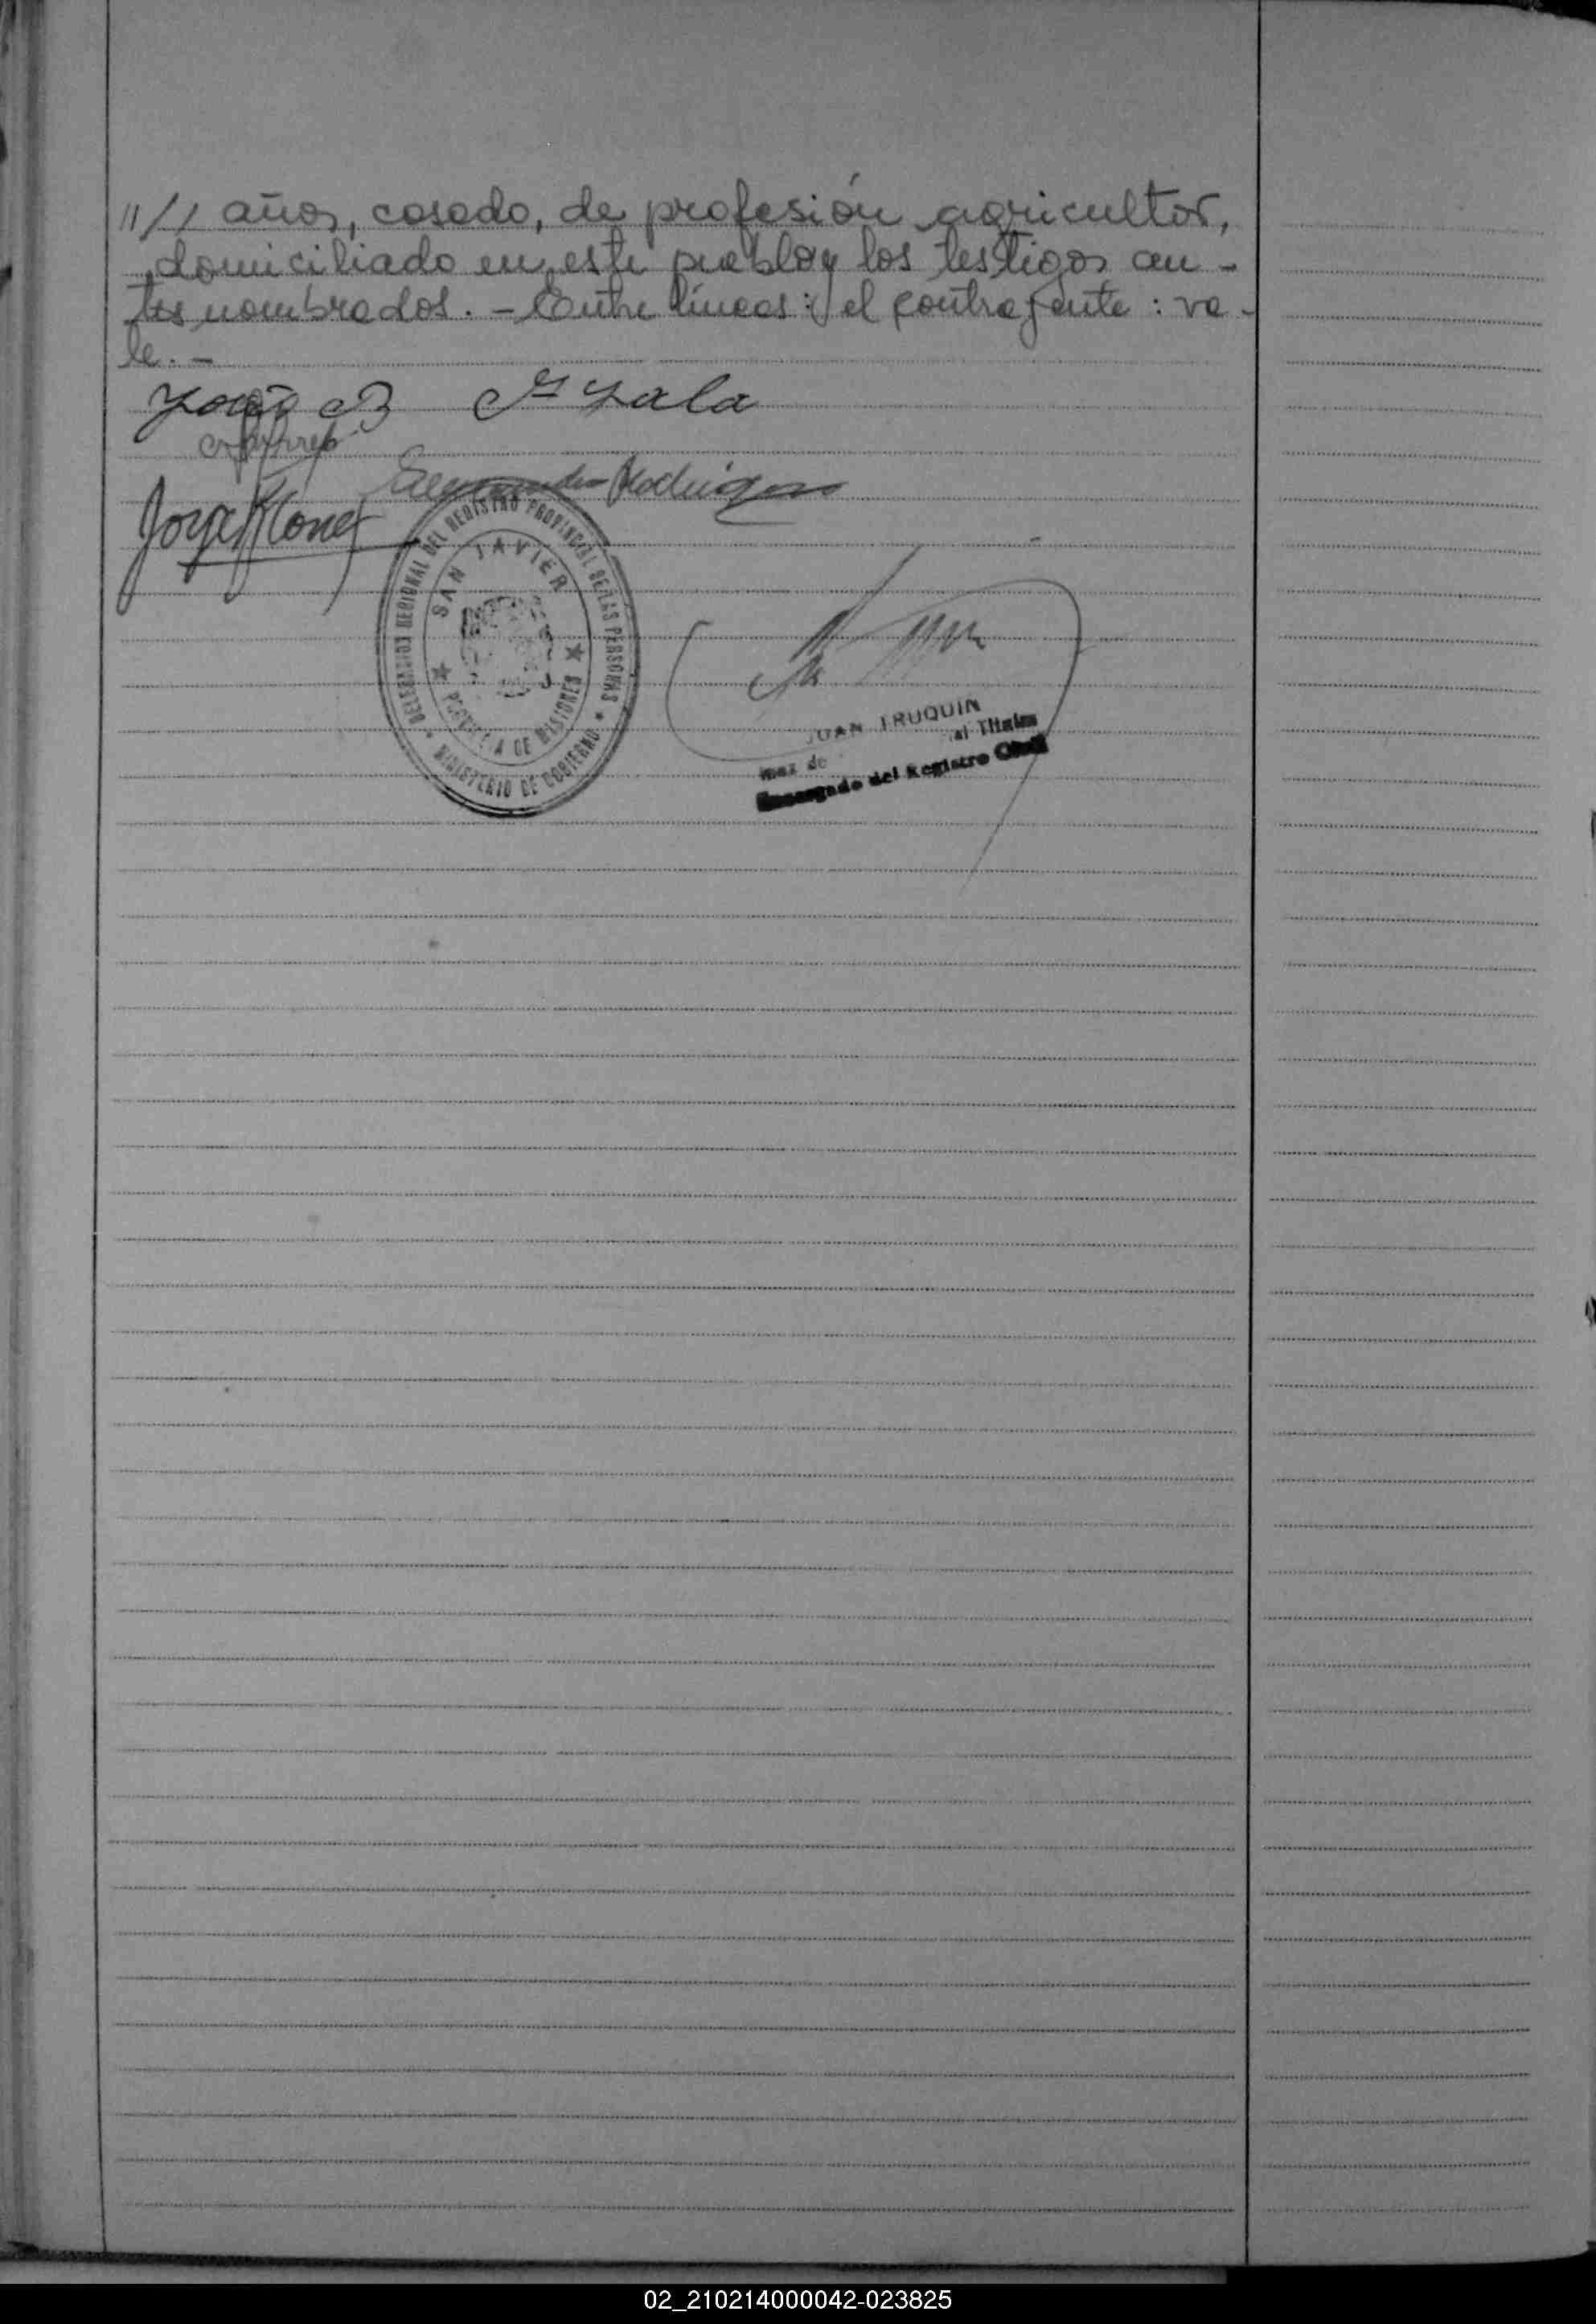 11// años, casado, de profesión agricultor,
domiciliado en este pueblo y los testigos an-
tes nombrados. - Entre líneas: el contrayente: va-
le. -
João B Zala
Rodriguez
Jorge
DELEGACION REGIONAL DEL REGISTRO PROVINCIAL DE LAS PERSONAS
SAN JAVIER
PROVINCIA DE MISIONES
MINISTERIO DE GOBIERNO
JUAN IRUQUIN
Juez de
Encargado del Registro Civil
02_210214000042-023825